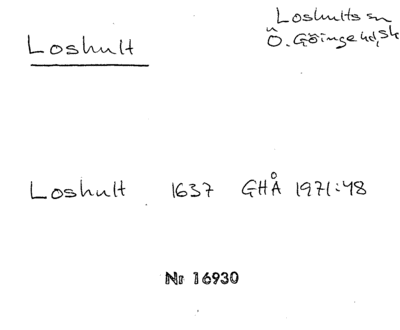 Loshult
Loshults sn
Ö. Göinge hd, Sk
Loshult 1637 GHÅ 1971:48
Nr 16930